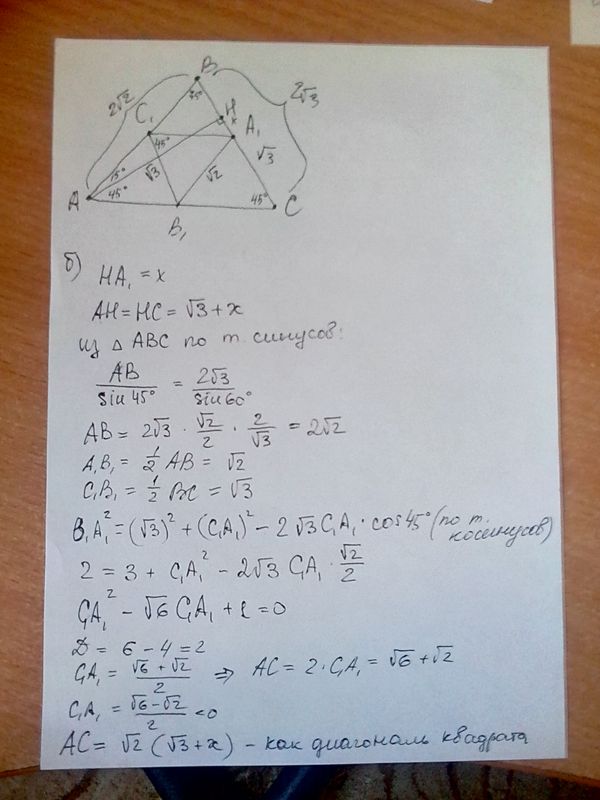 B
2√2
2√3
75°
H
C₁
x
A₁
45°
√3
15°
√3
√2
45°
45°
A
C
B₁
б)
HA₁ = x
AH = HC = √3 + x
из △ ABC по т. синусов:
AB / sin 45° = 2√3 / sin 60°
AB = 2√3 · √2/2 · 2/√3 = 2√2
A₁B₁ = 1/2 AB = √2
C₁B₁ = 1/2 BC = √3
B₁A₁² = (√3)² + (C₁A₁)² − 2√3 C₁A₁ · cos 45° (по т. косинусов)
2 = 3 + C₁A₁² − 2√3 C₁A₁ · √2/2
C₁A₁² − √6 C₁A₁ + 1 = 0
D = 6 − 4 = 2
C₁A₁ = (√6 + √2)/2 ⇒ AC = 2 · C₁A₁ = √6 + √2
C₁A₁ = (√6 − √2)/2 < 0
AC = √2 (√3 + x) – как диагональ квадрата